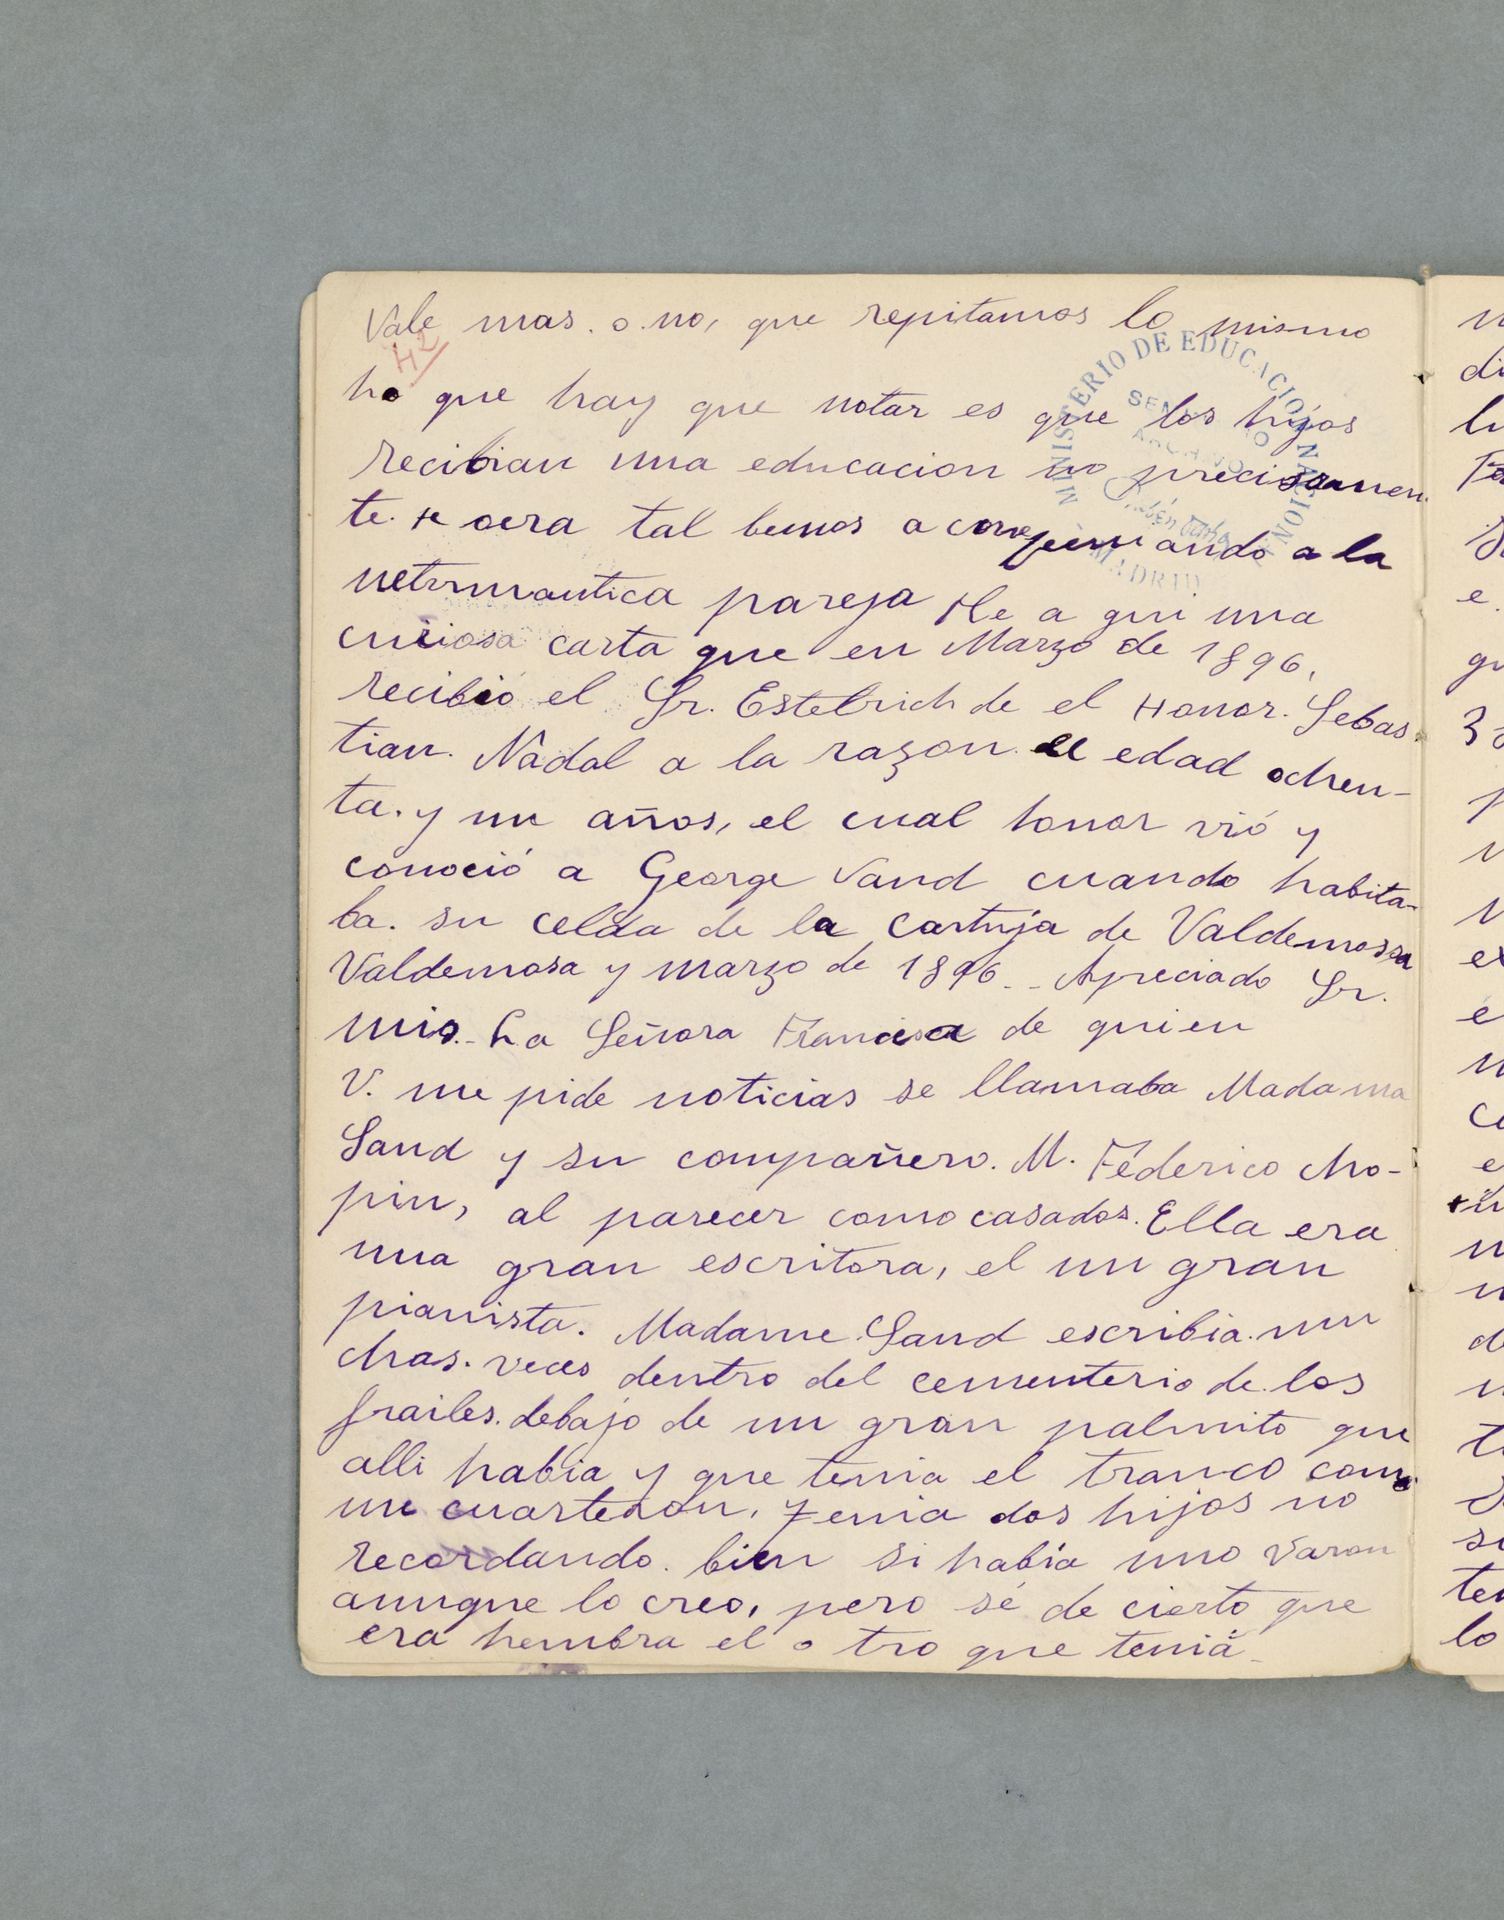 Vale mas. o. no, que repitamos lo mismo
42
ho que hay que notar es que los hijos
recibian una educacion no precisamen
te. tal bemos a ando a la
pareja He a qui una
curiosa carta que en Marzo de 1896,
recibió el Sr. Estelrich de el Honor. Sebas
tian. Nadal a la razon edad ochen-
ta. y un años, el cual honor vió y
conoció a George Vand cuando habita-
ba. su celda de la cartuja de Valdemossa
Valdemosa y marzo de 1896.- Apreciado Sr.
mio.- La Señora Francisa de quien
V. me pide noticias se llamaba Madama
Sand y su compañero. M. Féderico Cho-
pin, al parecer como casados. Ella era
una gran escritora, el un gran
pianista. Madame Sand escribia. mu
chas. veces dentro del cementerio de los
frailes. debajo de un gran palmito que
alli habia y que tenia el tranco como
un cuarteron, Tenia dos hijos no
recordando. bien si había uno varon
aunque lo creo, pero sé de cierto que
era hembra el o tro que teniá-
MINISTERIO DE EDUCACION NACIONAL
SEMINARIO
ARCHIVO
Rubén Darío
MADRID